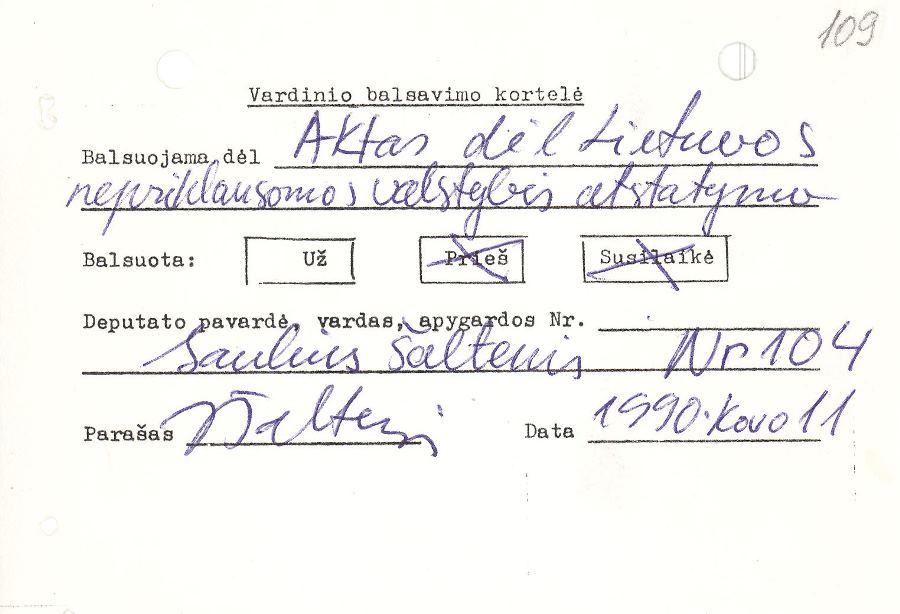 109
Vardinio balsavimo kortelė
Balsuojama dėl Aktas dėl Lietuvos
nepriklausomos valstybės atstatymo
Balsuota: Už Prieš Susilaikė
Deputato pavardė, vardas, apygardos Nr.
Saulius Šaltenis Nr 104
Parašas Šaltenis Data 1990. Kovo 11